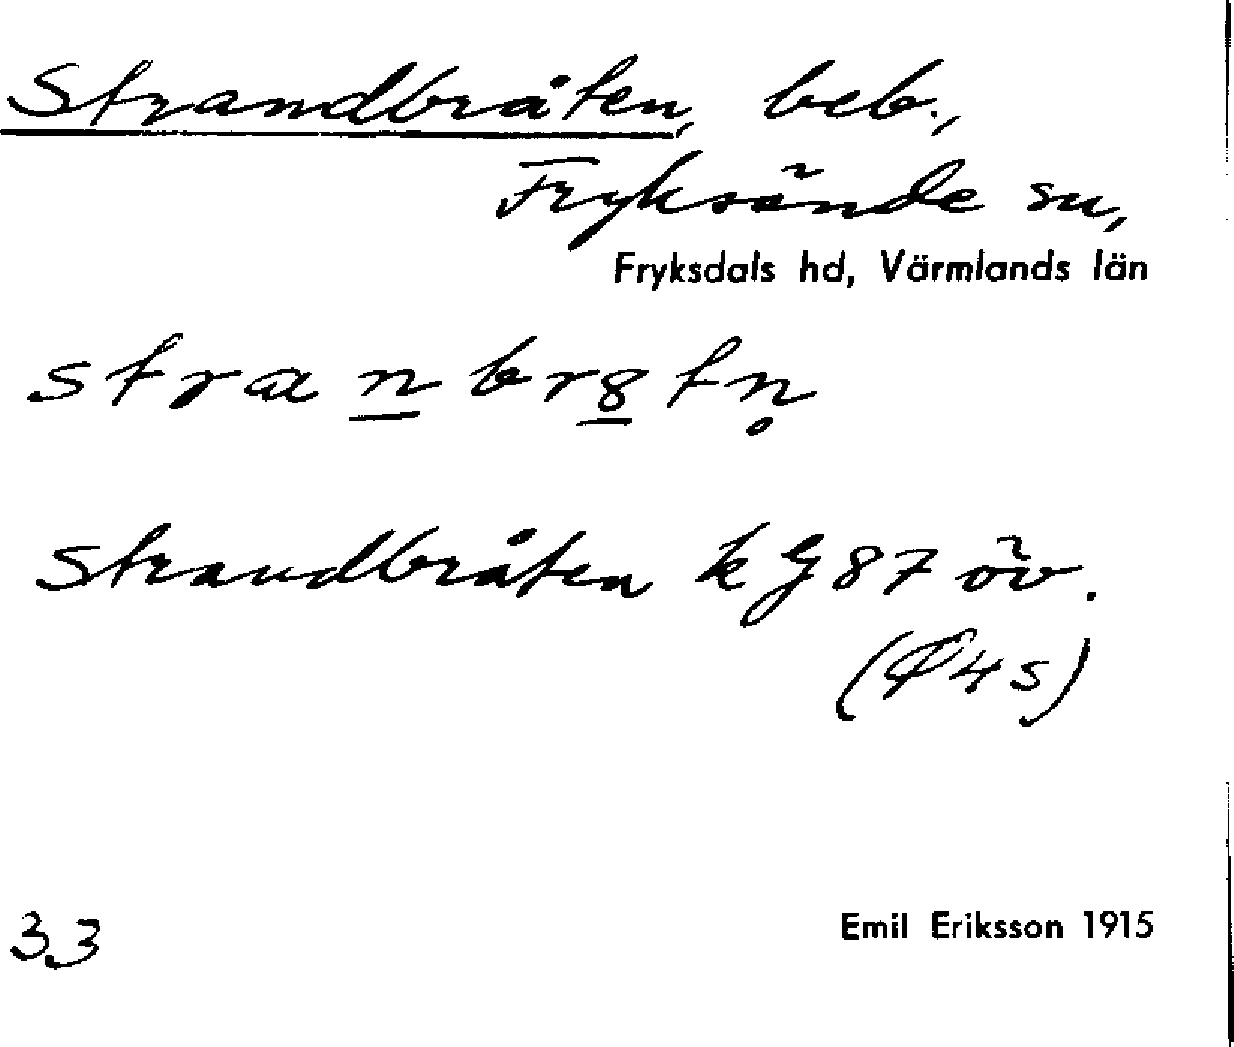 Strandbråten, beb.,
Fryksände sn,
Fryksdals hd, Värmlands län
stranbr8tn̥
Strandbråten kG87 öv.
33
Emil Eriksson 1915